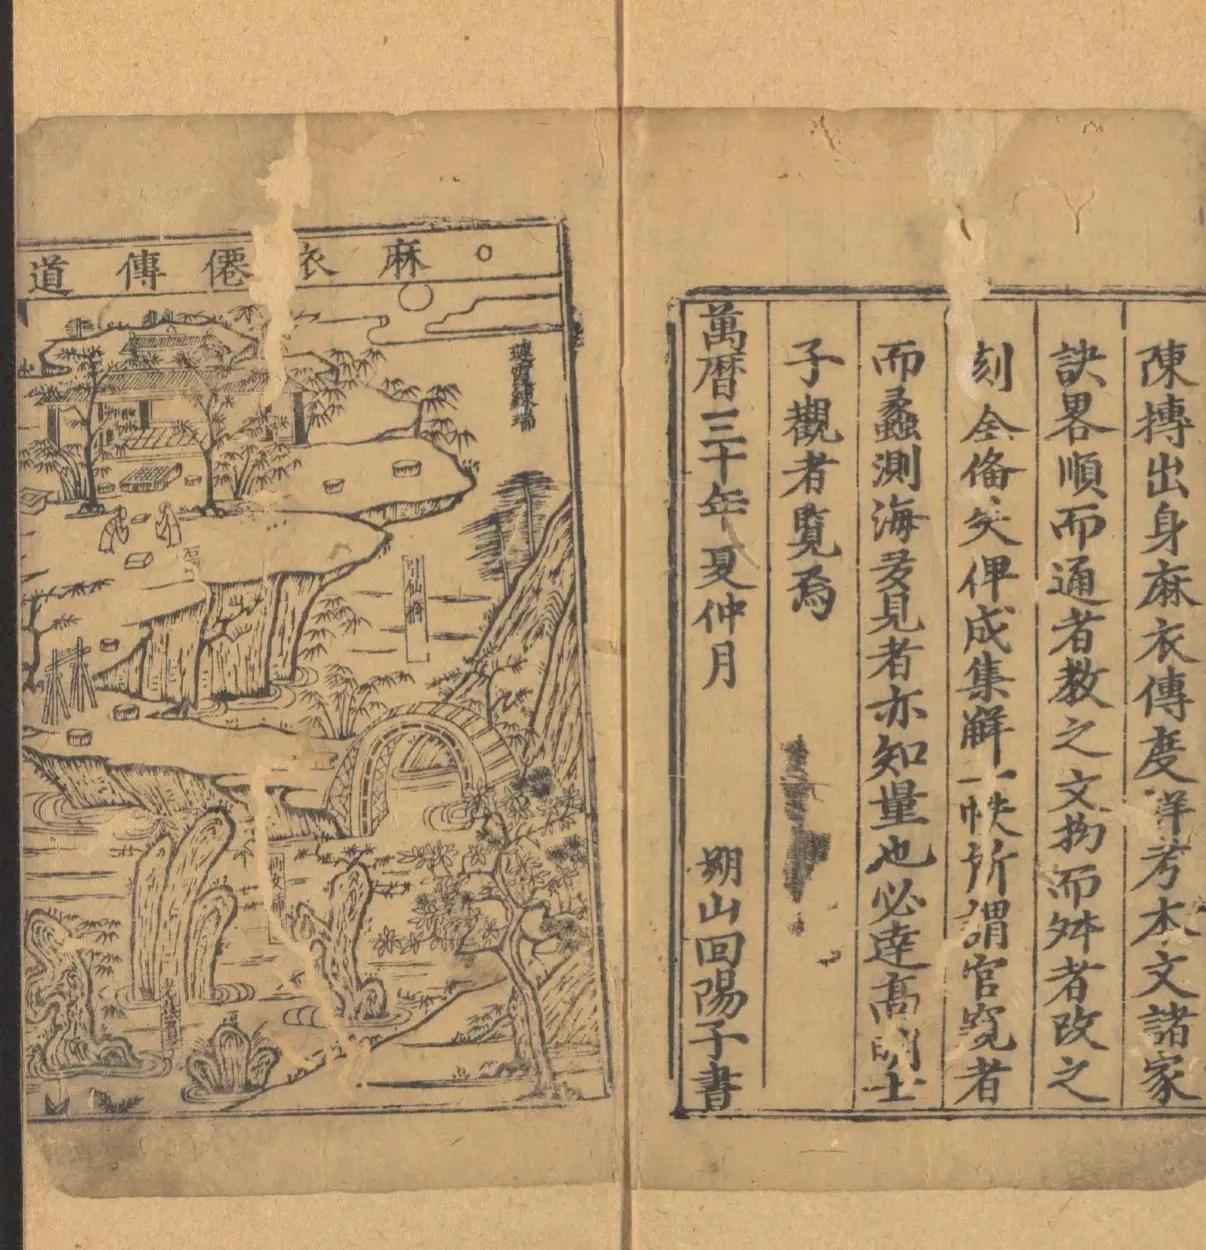 陳摶出身麻衣傳度詳考本文諸家
訣畧順而通者教之文拗而舛者改之
刻全俻矣俾成集解一帙所謂官窺者
而蠡測海多見者亦知量也必逹髙明士
子觀者覧焉
萬曆三十年夏仲月 朔山回陽子書
○麻衣僊傳道
引仙橋